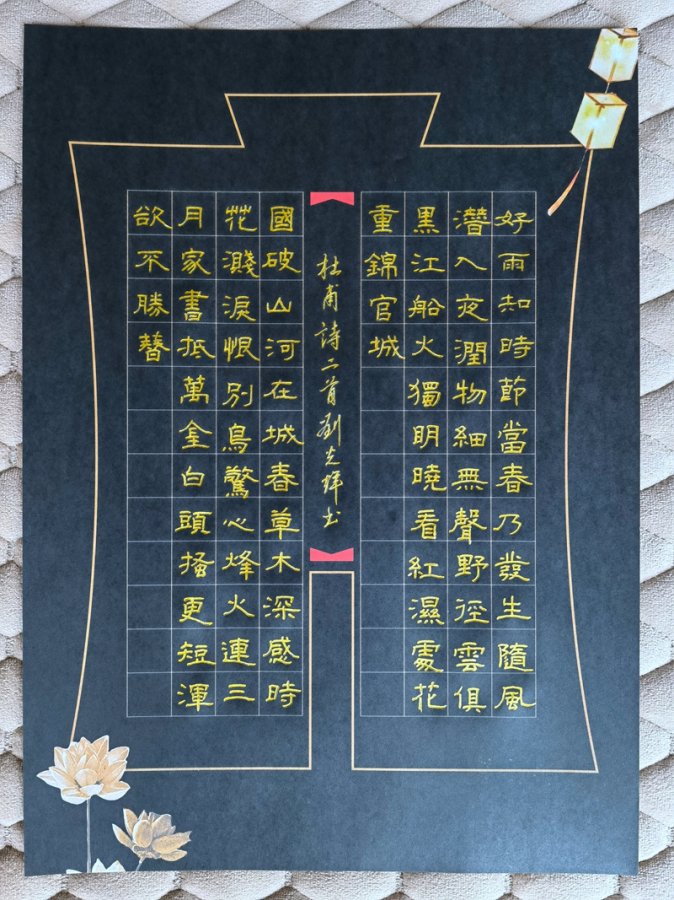 好雨知時節當春乃發生隨風
潛入夜潤物細無聲野徑雲俱
黑江船火獨明曉看紅濕處花
重錦官城
杜甫詩二首劉光輝书
國破山河在城春草木深感時
花濺淚恨別鳥驚心烽火連三
月家書抵萬金白頭搔更短渾
欲不勝簪